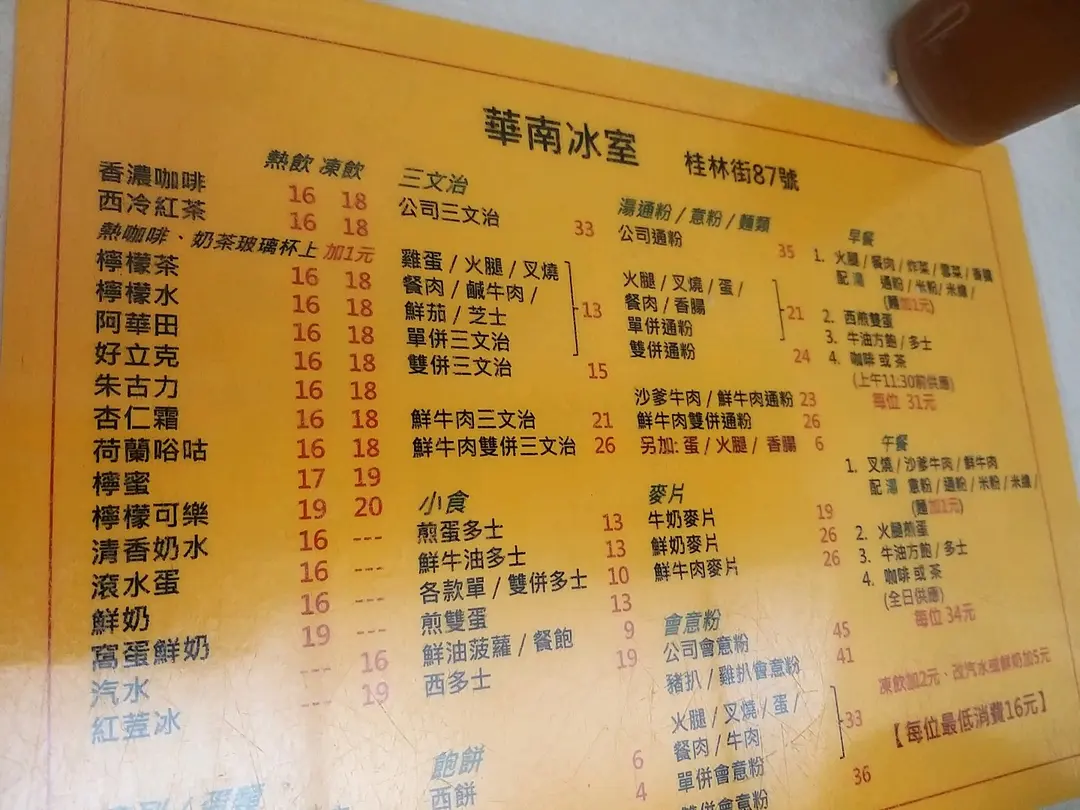 華南冰室 桂林街87號
熱飲 凍飲
香濃咖啡 16 18
西冷紅茶 16 18
熱咖啡、奶茶玻璃杯上 加1元
檸檬茶 16 18
檸檬水 16 18
阿華田 16 18
好立克 16 18
朱古力 16 18
杏仁霜 16 18
荷蘭唂咕 16 18
檸蜜 17 19
檸檬可樂 19 20
清香奶水 16 ---
滾水蛋 16 ---
鮮奶 16 ---
窩蛋鮮奶 19 ---
汽水 --- 16
紅荳冰 --- 19
三文治
公司三文治 33
雞蛋 / 火腿 / 叉燒
餐肉 / 鹹牛肉 /
鮮茄 / 芝士 13
單併三文治
雙併三文治 15
鮮牛肉三文治 21
鮮牛肉雙併三文治 26
小食
煎蛋多士 13
鮮牛油多士 13
各款單 / 雙併多士 10
煎雙蛋 13
鮮油菠蘿 / 餐飽 9
西多士 19
飽餅 6
西餅 4
湯通粉 / 意粉 / 麵類
公司通粉 35
火腿 / 叉燒 / 蛋 /
餐肉 / 香腸 21
單併通粉
雙併通粉 24
沙爹牛肉 / 鮮牛肉通粉 23
鮮牛肉雙併通粉 26
另加: 蛋 / 火腿 / 香腸 6
麥片
牛奶麥片 19
鮮奶麥片 26
鮮牛肉麥片 26
會意粉
公司會意粉 45
豬扒 / 雞扒會意粉 41
火腿 / 叉燒 / 蛋 /
餐肉 / 牛肉 33
單併會意粉
雙併會意粉 36
早餐
1. 火腿 / 餐肉 / 炸菜 / 雪菜 / 香腸
配 湯 通粉 / 米粉 / 米線 /
(麵加1元)
2. 西煎雙蛋
3. 牛油方飽 / 多士
4. 咖啡 或 茶
(上午11:30前供應)
每位 31元
午餐
1. 叉燒 / 沙爹牛肉 / 鮮牛肉
配 湯 意粉 / 通粉 / 米粉 / 米線 /
(麵加1元)
2. 火腿煎蛋
3. 牛油方飽 / 多士
4. 咖啡 或 茶
(全日供應)
每位 34元
凍飲加2元、改汽水或鮮奶加5元
【每位最低消費16元】